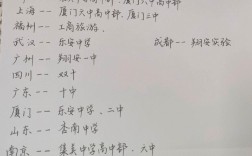 上海 -- 厦门六中高中部、厦门三中
福州 -- 工商旅游、
武汉 -- 乐安中学 成都 -- 翔安实验
广州 -- 翔安一中
四川 -- 双十
广东 -- 十中
厦门 -- 乐安中学、二中
山东 -- 杏南中学
南京 -- 集美中学高中部、六中